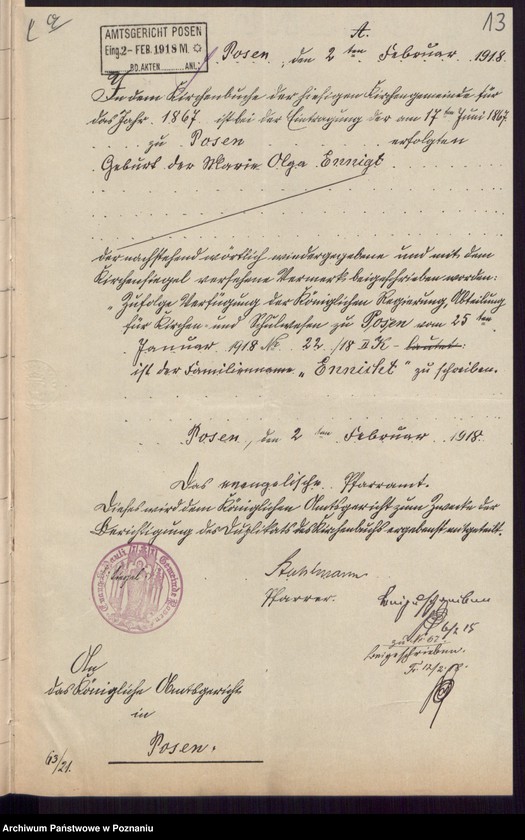 13
A.
AMTSGERICHT POSEN
Eing. 2- FEB. 1918 M.
BD. AKTEN ANL.:
Posen, den 2ten Februar 1918.
In dem Kirchenbuche der hiesigen Kirchengemeinde für
das Jahr 1867 ist bei der Eintragung der am 17ten Juni 1867.
zu Posen erfolgten
Geburt der Marie Olga Ennigt
der nachstehend wörtlich wiedergegebene und mit dem
Kirchensiegel versehene Vermerk beigeschrieben worden:
"Zufolge Verfügung der Königlichen Regierung, Abteilung
für Kirchen- und Schulwesen zu Posen vom 25ten
Januar 1918 No. 22./18 II K - lautet:
ist der Familienname „Ennikt" zu schreiben.
Posen, den 2ten Februar 1918.
Das evangelische Pfarramt.
Dieses wird dem Königlichen Amtsgericht zum Zwecke der
Berichtigung des Duplikats des Kirchenbuchs ergebenst mitgeteilt.
Siegel
Kuhlmann
Pfarrer.
Beizuschreiben
6/2 15
zu Nr 67
beigeschrieben.
An
das Königliche Amtsgericht
in
Posen.
63/21.
Archiwum Państwowe w Poznaniu